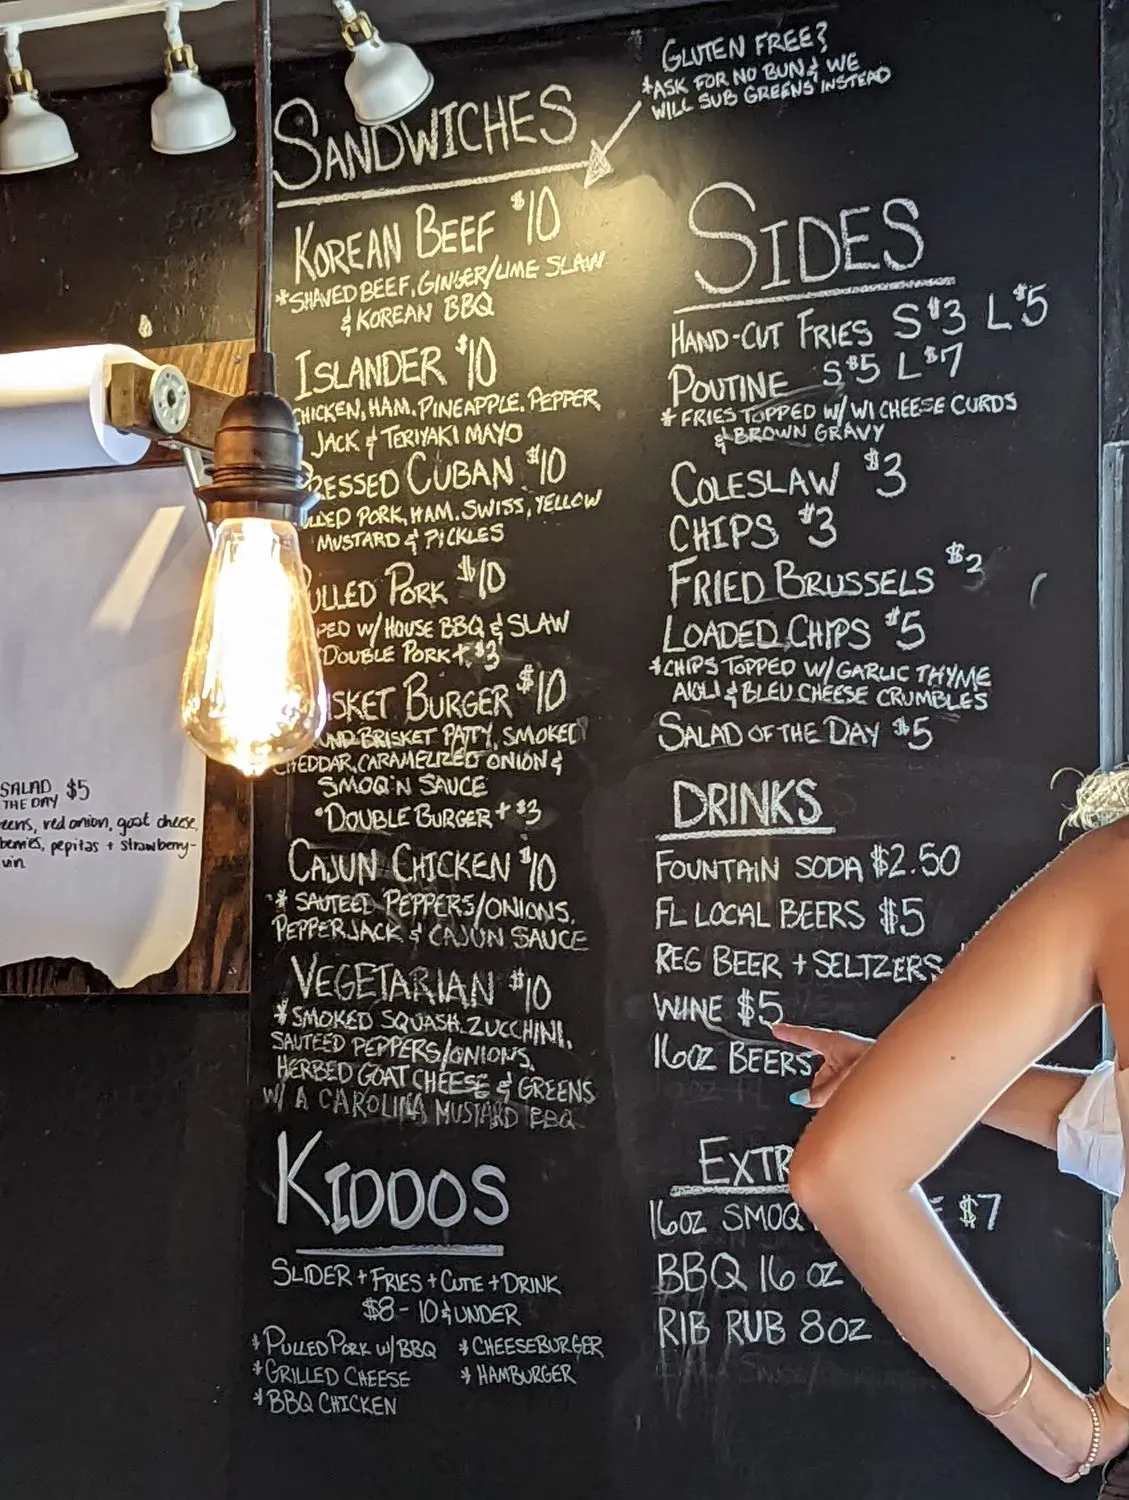 GLUTEN FREE?
*ASK FOR NO BUN & WE
WILL SUB GREENS INSTEAD
SANDWICHES
KOREAN BEEF $10
*SHAVED BEEF, GINGER/LIME SLAW
& KOREAN BBQ
ISLANDER $10
CHICKEN, HAM, PINEAPPLE, PEPPER
JACK & TERIYAKI MAYO
RESSED CUBAN $10
LLED PORK, HAM, SWISS, YELLOW
MUSTARD & PICKLES
ULLED PORK $10
PED W/ HOUSE BBQ & SLAW
DOUBLE PORK + $3
SKET BURGER $10
UND BRISKET PATTY, SMOKED
CHEDDAR, CARAMELIZED ONION &
SMOQ'N SAUCE
*DOUBLE BURGER + $3
CAJUN CHICKEN $10
* SAUTEED PEPPERS/ONIONS,
PEPPERJACK & CAJUN SAUCE
VEGETARIAN $10
*SMOKED SQUASH, ZUCCHINI,
SAUTEED PEPPERS/ONIONS,
HERBED GOAT CHEESE & GREENS
W/ A CAROLINA MUSTARD BBQ
KIDDOS
SLIDER + FRIES + CUTIE + DRINK
$8 - 10 & UNDER
*PULLED PORK W/ BBQ
*GRILLED CHEESE
*BBQ CHICKEN
*CHEESEBURGER
*HAMBURGER
SIDES
HAND-CUT FRIES S $3 L $5
POUTINE S $5 L $7
*FRIES TOPPED W/ WI CHEESE CURDS
& BROWN GRAVY
COLESLAW $3
CHIPS $3
FRIED BRUSSELS $2
LOADED CHIPS $5
*CHIPS TOPPED W/ GARLIC THYME
AIOLI & BLEU CHEESE CRUMBLES
SALAD OF THE DAY $5
DRINKS
FOUNTAIN SODA $2.50
FL LOCAL BEERS $5
REG BEER + SELTZERS
WINE $5
16OZ BEERS
EXTR
16OZ SMOQ E $7
BBQ 16 OZ
RIB RUB 8OZ
SALAD $5
THE DAY
eens, red onion, goat cheese,
berries, pepitas + strawberry-
vin